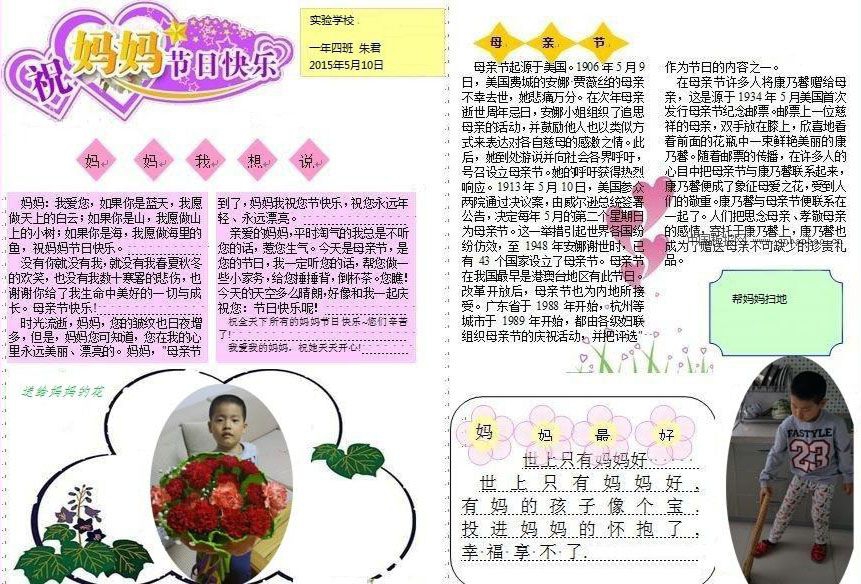 祝妈妈节日快乐
实验学校
一年四班 朱君
2015年5月10日
妈 妈 我 想 说
妈妈：我爱您，如果你是蓝天，我愿
做天上的白云；如果你是山，我愿做山
上的小树；如果你是海，我愿做海里的
鱼，祝妈妈节日快乐。
没有你就没有我，就没有我春夏秋冬
的欢笑，也没有我数十寒暑的悲伤，也
谢谢你给了我生命中美好的一切与成
长。母亲节快乐！
时光流逝，妈妈，您的皱纹也日夜增
多，但是，妈妈您可知道，您在我的心
里永远美丽、漂亮的。妈妈，“母亲节
到了，妈妈我祝您节快乐，祝您永远年
轻、永远漂亮。
亲爱的妈妈，平时淘气的我总是不听
您的话，惹您生气。今天是母亲节，是
您的节日，我一定听您的话，帮您做一
些小家务，给您捶捶背，倒杯茶。您瞧！
今天的天空多么晴朗，好像和我一起庆
祝您：节日快乐呢！
祝全天下所有的妈妈节日快乐~您们辛苦
了！
我爱我的妈妈，祝她天天开心！
送给妈妈的花
母 亲 节
母亲节起源于美国。1906 年 5 月 9
日，美国费城的安娜·贾薇丝的母亲
不幸去世，她悲痛万分。在次年母亲
逝世周年忌日，安娜小姐组织了追思
母亲的活动，并鼓励他人也以类似方
式来表达对各自慈母的感激之情。此
后，她到处游说并向社会各界呼吁，
号召设立母亲节。她的呼吁获得热烈
响应。1913 年 5 月 10 日，美国参众
两院通过决议案，由威尔逊总统签署
公告，决定每年 5 月的第二个星期日
为母亲节。这一举措引起世界各国纷
纷仿效，至 1948 年安娜谢世时，已
有 43 个国家设立了母亲节。母亲节
在我国最早是港澳台地区有此节日。
改革开放后，母亲节也为内地所接
受。广东省于 1988 年开始，杭州等
城市于 1989 年开始，都由各级妇联
组织母亲节的庆祝活动，并把评选“
作为节日的内容之一。
在母亲节许多人将康乃馨赠给母
亲，这是源于 1934 年 5 月美国首次
发行母亲节纪念邮票。邮票上一位慈
祥的母亲，双手放在膝上，欣喜地看
着前面的花瓶中一束鲜艳美丽的康
乃馨。随着邮票的传播，在许多人的
心目中把母亲节与康乃馨联系起来，
康乃馨便成了象征母爱之花，受到人
们的敬重。康乃馨与母亲节便联系在
一起了。人们把思念母亲、孝敬母亲
的感情，寄托于康乃馨上，康乃馨也
成为了赠送母亲不可缺少的珍贵礼
品。
帮妈妈扫地
妈 妈 最 好
世上只有妈妈好
世上只有妈妈好，
有妈的孩子像个宝，
投进妈妈的怀抱了，
幸福享不了.
FASTYLE
23